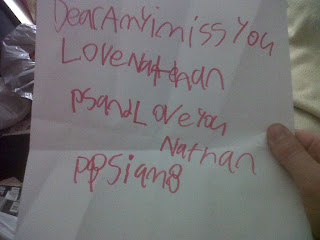 Dear AmY i miss You
Love Nathan
Ps and Love You
Nathan
PPS i am 8